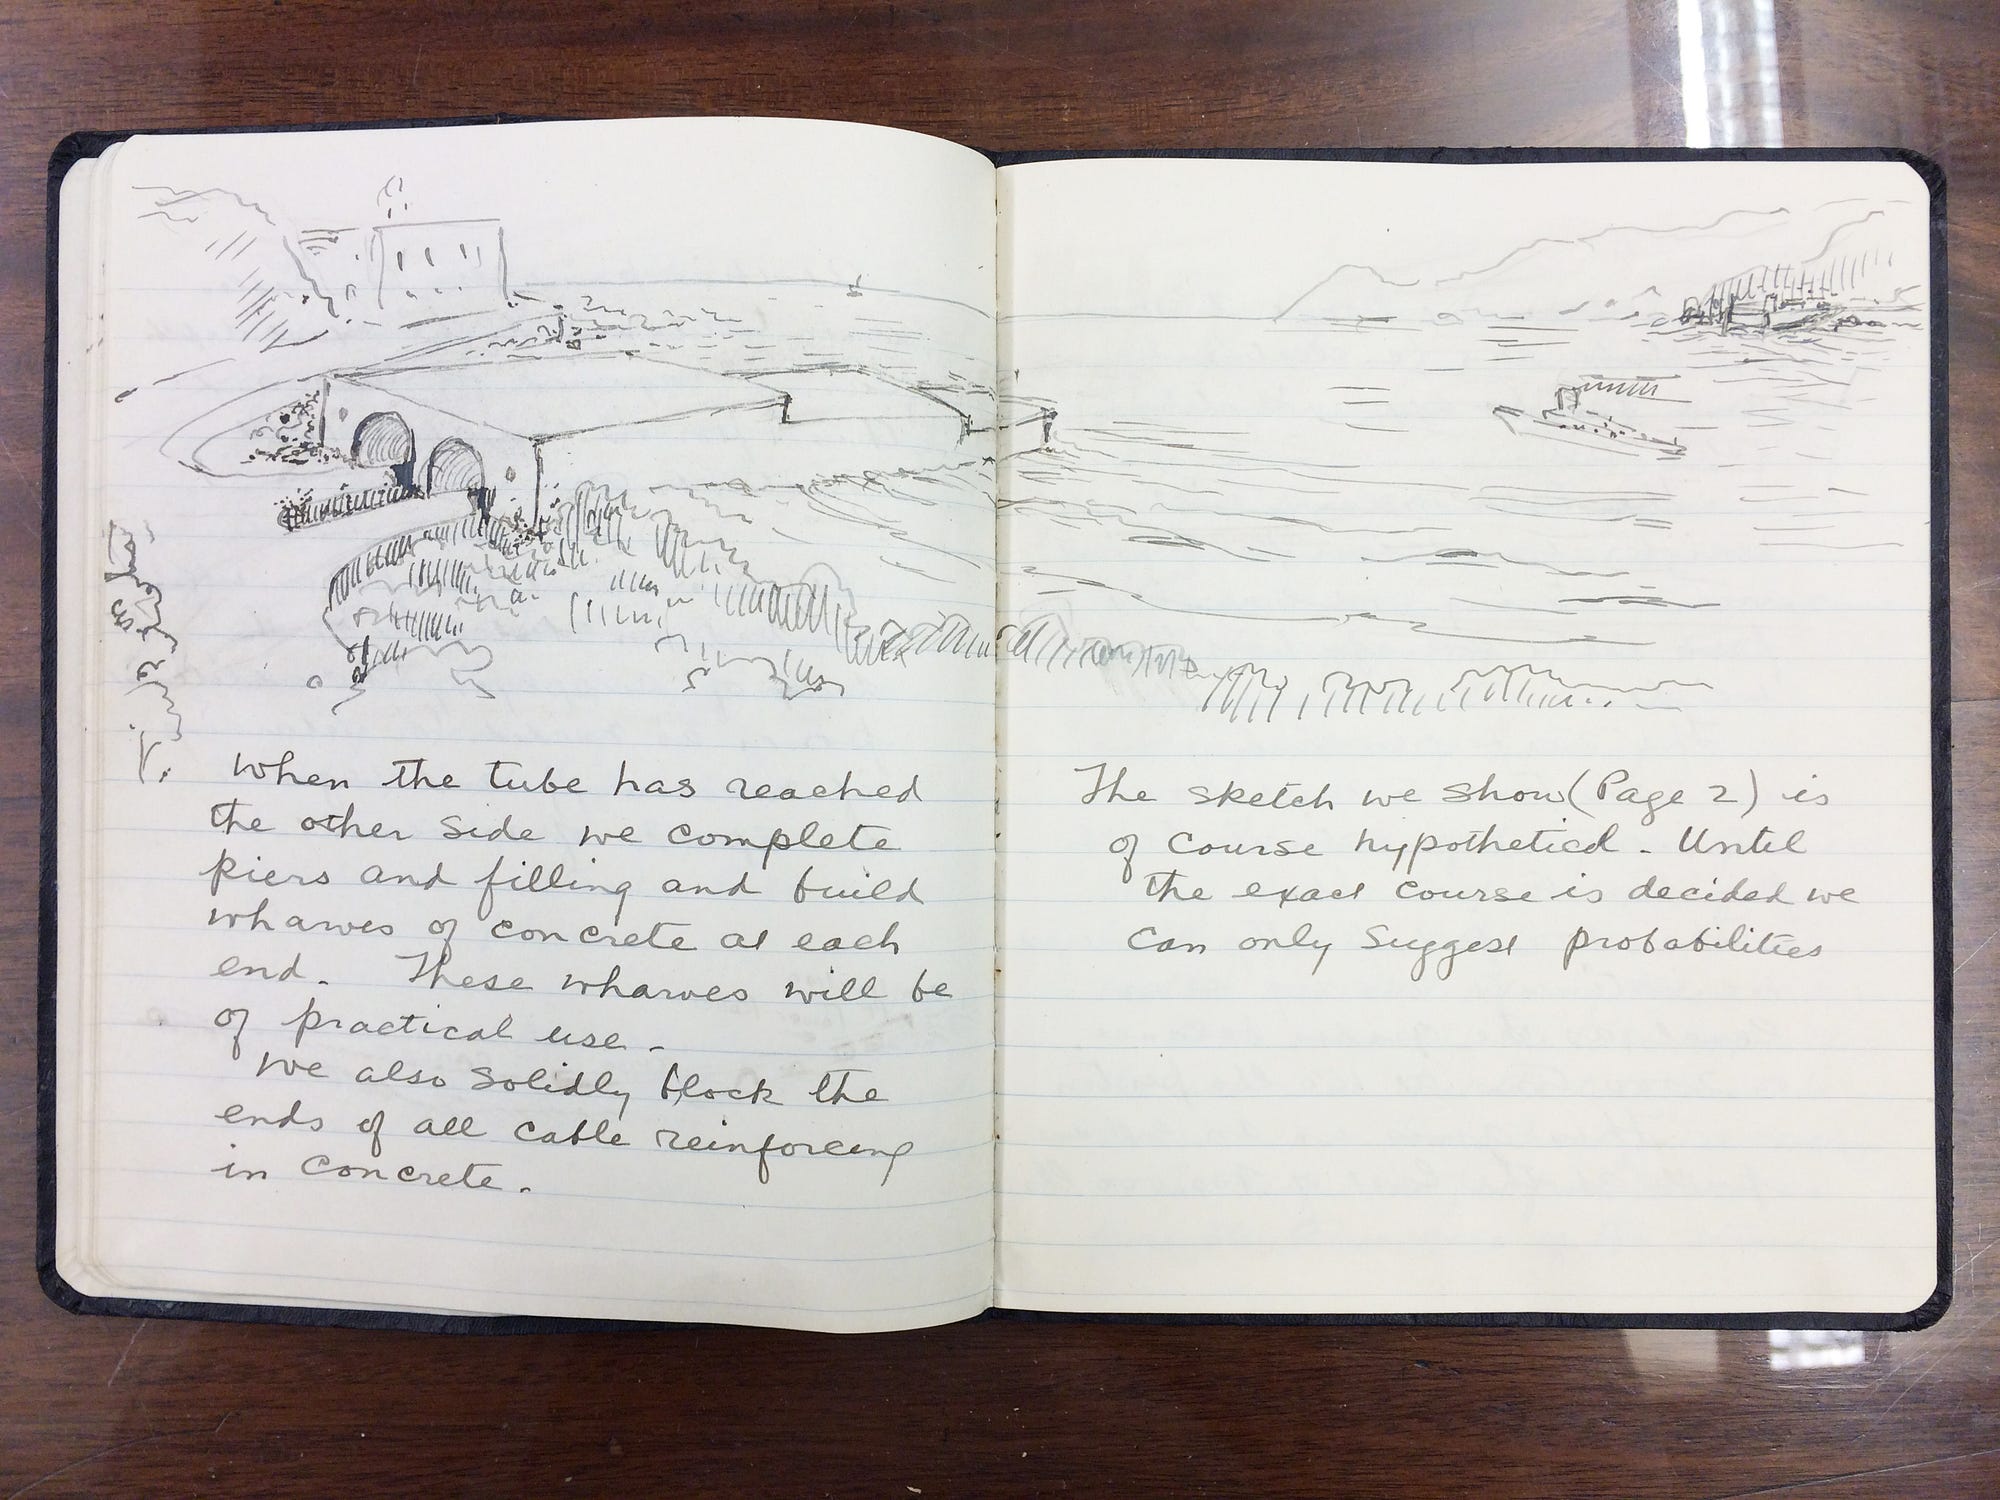 V. When the tube has reached
the other side we complete
piers and filling and build
wharves of concrete at each
end. These wharves will be
of practical use.
We also solidly block the
ends of all cable reinforcing
in concrete.
The sketch we show (Page 2) is
of course hypothetical. Until
the exact course is decided we
can only suggest probabilities